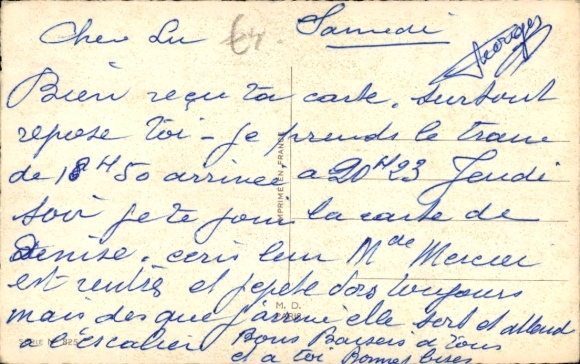 Cher Lu
Samedi
Georges
Bien reçu ta carte. surtout
repose toi - je prends le train
de 18H50 arrivee a 20H23 Jeudi
soir je te joins la carte de
Denise. ecris leur Mde Mercier
est rentrée et je dors toujours
mais des que j'arrive elle sort et attend
a l'escalier Bons Baisers a Tous
et a toi Bonnes bises
IMPRIMÉ EN FRANCE
M. D.
PARIS